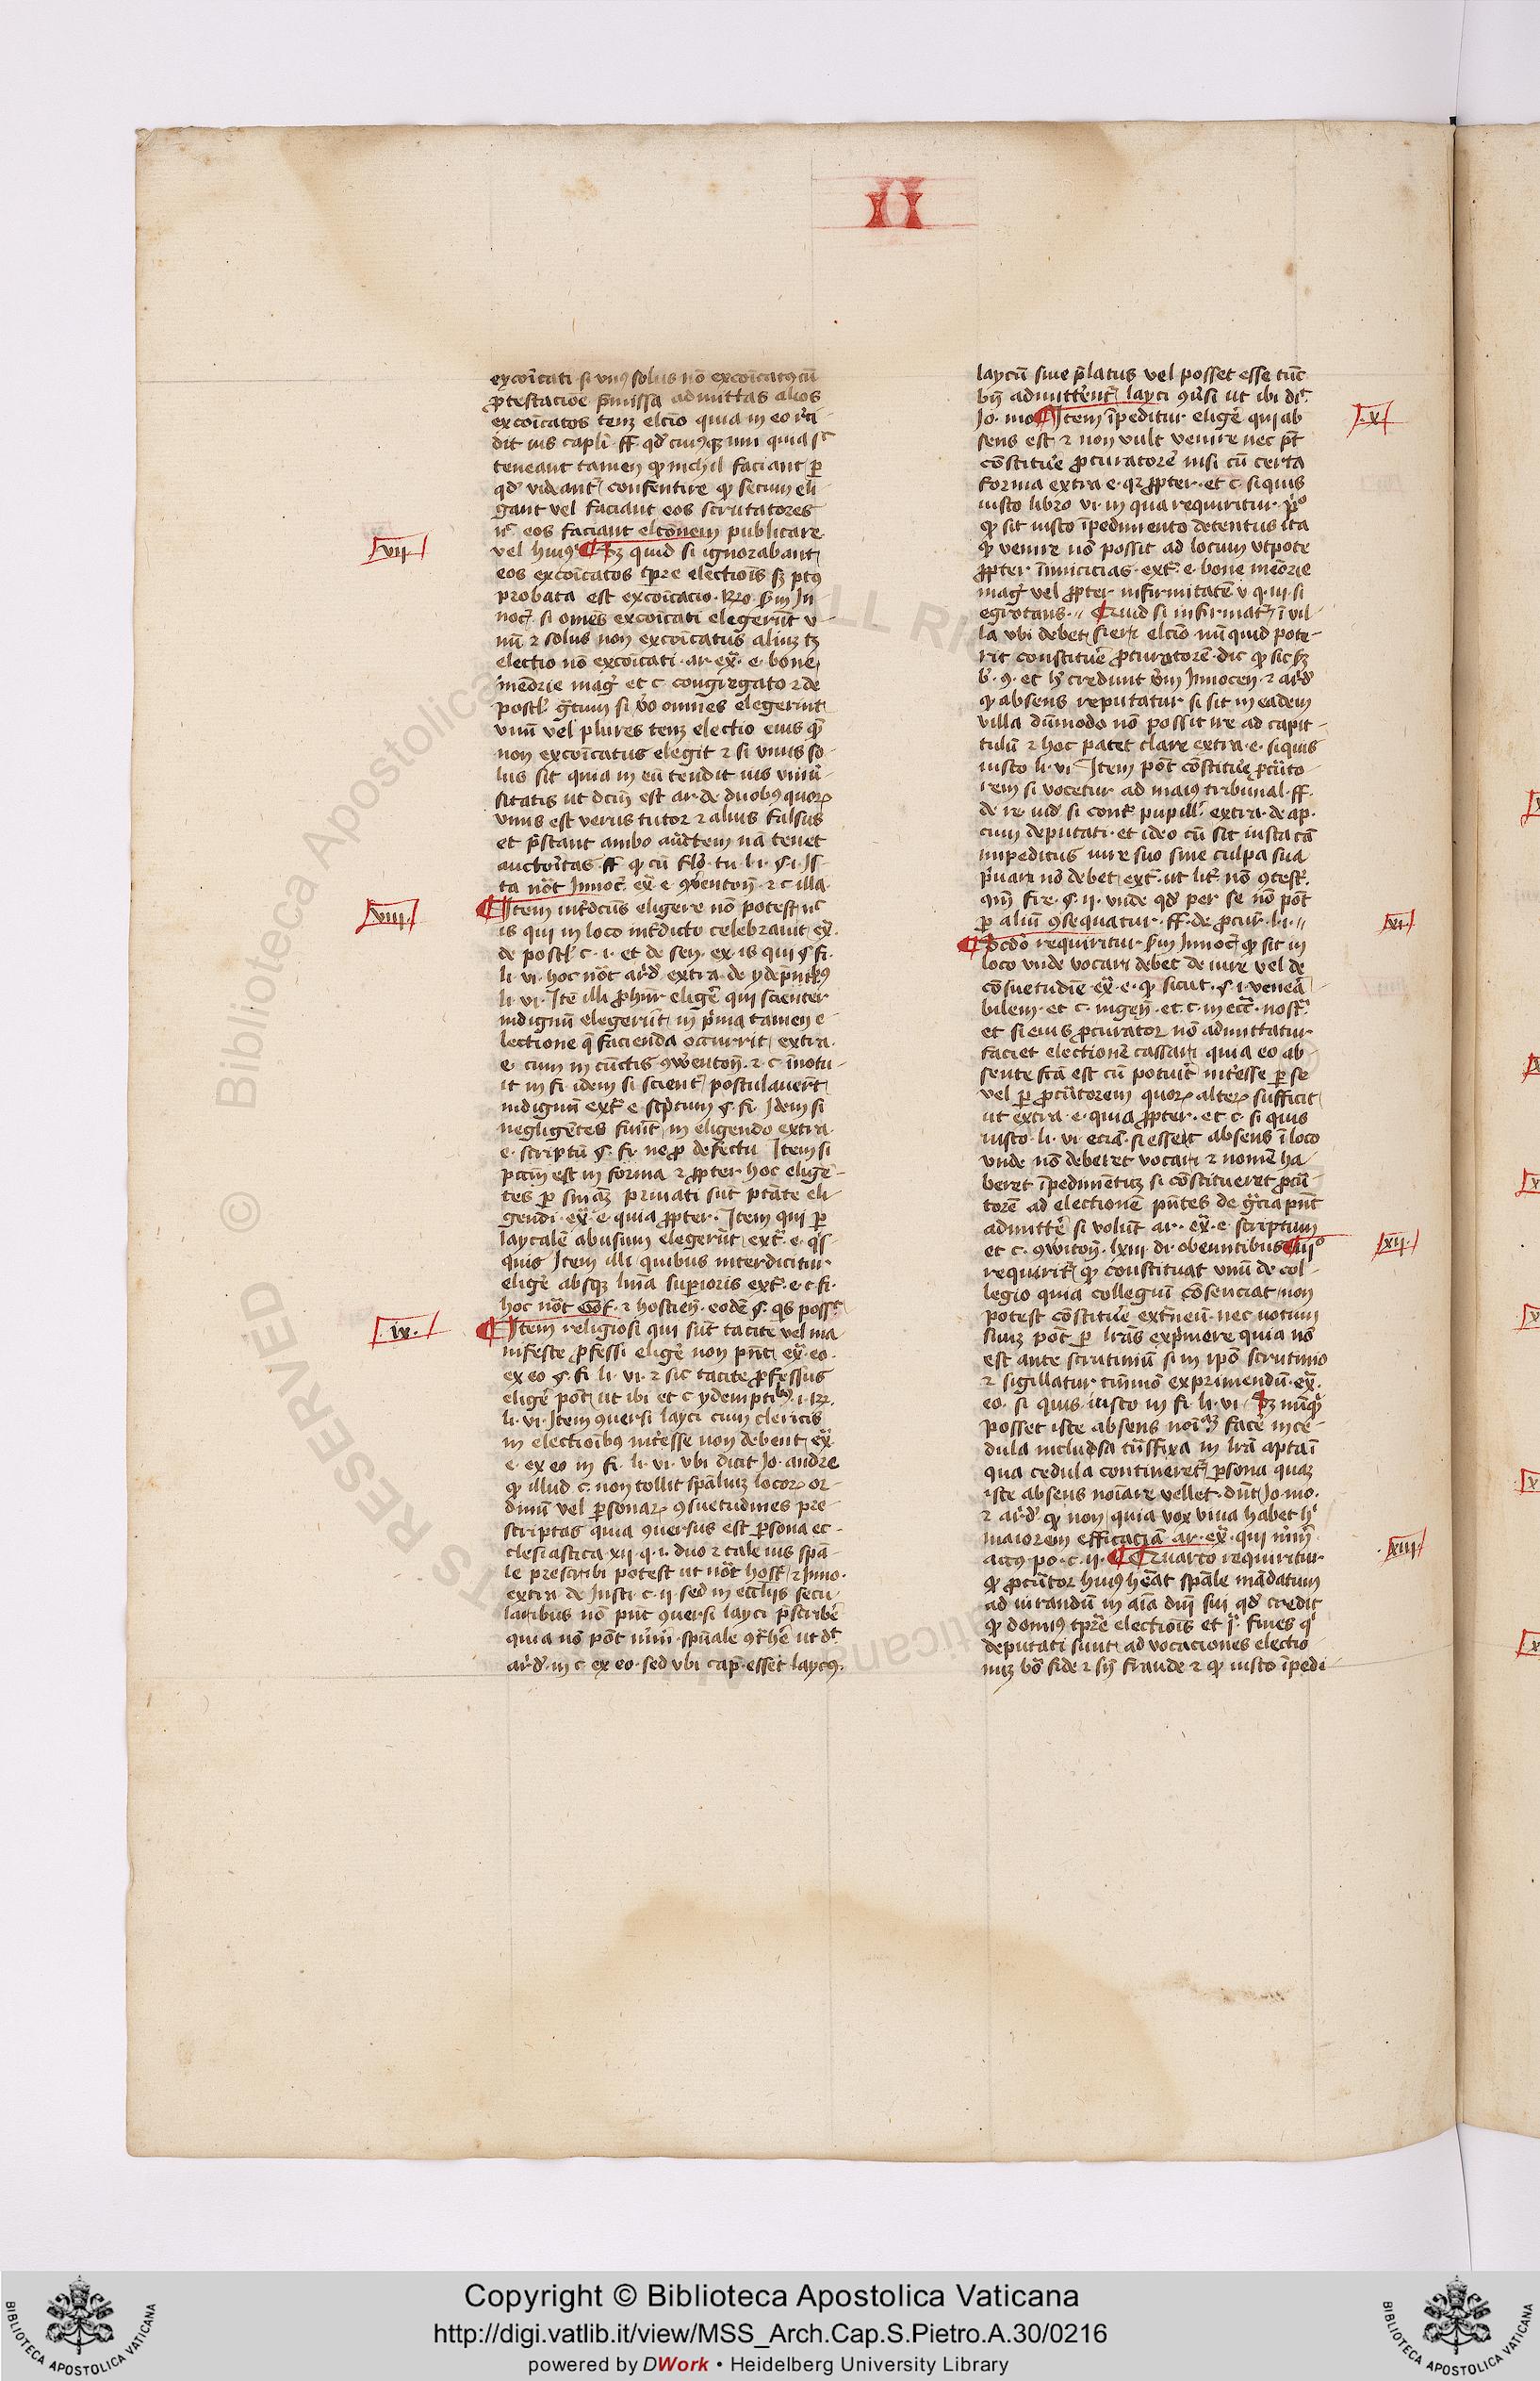 II
excoicati si vnꝰ solus nō excoicatꝰ cū
ꝓtestacioe p̄missa admittas alios
excoicatos tenz elcio quia in eo rͥci
dit ius capli ff qd cuiꝰqz uni quia sͨ
teneant tamen ꝙ nichil faciant ꝑ
qd videant consentire ꝙ secum eli
gant vel faciant eos scrutatores
nͨ eos faciant elconem publicare
vel huiꝰ ¶ Sz quid si ignorabant
eos excoicatos tꝑre electiois sz pꝰ
probata est excoicacio Ro sm In
noc si omēs excoicati elegerūt v
nū ⁊ solus non excoicatus aliuz tz
electio nō excoicati ar ex̄ e bone
meōrie mag̃ et c congregato ⁊ de
postl̄ gͣtum si vͦo omnes elegerint
vnū vel plures tenz electio eius quē
non excoicatus elegit ⁊ si vnus so
lus sit quia in eū tendit ius vniuͥ
sitatis ut dcm̄ est ar de duobꝰ quoꝝ
vnus est verus tutor ⁊ alius falsus
et p̄stant ambo auctem nā tenet
auctoritas ff ꝙ cū fl̄o tu l i ꝭ i Is
ta not̄ Innoc̄ ex̄ e ꝯuenton̄ ⁊ c illa
vii
viii
¶ Item int̄dcūs eligere nō potest nͨ
is qui in loco int̄dicto celebrauit ex̄
de postl̄ c i et de sen ex is qui ꝭ fi
li vi hoc not̄ ard̄ extra de ydēpnitꝰ
li vi Itē illi ꝓhin̄r eligē qui scienter
indignū elegerūt in p̄ma tamen e
lectione q̄ facienda occurrit extra
e cum in cūctis ꝯuenton̄ ⁊ c īnotu
it in fi idem si scient postulauerūt
indignū ext̄ e scptum ꝭ fi Idem si
negligētes fuīt in eligendo extra
e scriptū ꝭ fi ne ꝓ defectu Item si
pctm̄ est in forma ⁊ ꝓpter hoc eligē
tes ꝑ snīaz priuati sūt ptāte eli
gendi ex̄ e quia ꝓpter Item qui ꝑ
laycalē abusum elegerūt ext̄ e qͥs
quis Item illi quibus interdicitur
eligē absqz līna superioris ext̄ e c fi
hoc not̄ Gof ⁊ hostien̄ eodē ꝭ qͥs poss̄
ix
¶ Item religiosi qui sūt tacite vel ma
nifeste ꝓfessi eligē non pn̄t ex̄ eo
ex eo ꝭ fi li vi ⁊ sic tacite ꝓfessus
eligē pot̄ ut ibi et c ydemptibꝰ i rͬ
li vi Item ꝯuersi layci cum clericis
in electioibꝰ int̄esse non debent ex̄
e ex eo in fi li vi vbi dicit Jo andre
ꝙ illud c non tollit spāluiz locoꝝ or
dinū vel ꝑsonaꝝ ꝯsuetudines pre
scriptas quia ꝯuersus est ꝑsona ec
clesiastica xii q i duo ⁊ tale ius spā
le prescribi potest ut not̄ host̄ ⁊ Inno
extra de Insti c ii sed in eccliis secu
laribus nō pn̄t ꝯuersi layci p̄scribē
quia nō pōt iuni spūale ꝯt̄hē ut dt̄
ard̄ in c ex eo sed vbi cap̄ esset laycꝰ
laycū siue p̄latus vel posset esse tūc
bn̄ admitt̄ent layci ꝯuͥsi ut ibi dt̄
Jo mo ¶ Item īpeditur eligē qui ab
sens est ⁊ non vult venire nec pt̄
cōstituē ꝓcuratorē nisi cū certa
forma extra e qz ꝓpter et c siquis
iusto libro vi in qua requiritur pͦ
ꝙ sit iusto īpedimento detentus ita
ꝙ venire nō possit ad locum utpote
ꝓpter īimicicias ext̄ e bone meōrie
mag̃ vel ꝓpter infirmitatē v q iii si
egrotans Quid si infirmat̄ ī vil
la vbi debet fieri elcio nūquid pote
rit constituē ꝓcuratorē dic ꝙ sic sz
b̄ ꝯ et h̄ credunt vm̄ Innocen ⁊ ard̄
ꝙ absens reputatur si sit in eadem
villa dūmodo nō possit ire ad capit
tulū ⁊ hoc patet clare extra e siquis
iusto li vi Item pōt cōstituē ꝓcūto
rem si vocetur ad maiꝰ tribunal ff
de re iud si cont̄ pupill̄ extra de ap
cum deputati et ideo cū sit iusta cā
impeditus iure suo sine culpa sua
p̄uari nō debet ext̄ ut lit̄ nō ꝯtest̄
qm̄ fre ꝭ ii vnde qd per se nō pōt
ꝑ aliū ꝯsequatur ff de ꝓcur l i
x
xi
¶ Scd̄o requiritur sm Innoc̄ ꝙ sit in
loco vnde vocari debet de iure vel de
cōsuetudine ex̄ e ꝙ sicut ꝭ i venea
bilem et c ingen̄ et c in ecc̄ nost̄
et si eius ꝓcurator nō admittatur
faciet electionē cassari quia eo ab
sente fcā est cū potuit int̄esse ꝑ se
vel ꝑ ꝓcūtorem quoꝝ alterꝝ sufficit
ut extra e quia ꝓpter et c si quis
iusto li vi eciā si esset absens ī loco
vnde nō deberet vocari ⁊ nomē ha
beret īpedimētuz si cōstitueret ꝓcū
torē ad electionē pn̄tes de gr̄a pn̄t
admittē si volūt ar ex̄ e scriptum
et c ꝯuiton̄ lxiii di obeuntibus ¶ iiiͦ
requirit̄ ꝙ constituat vnū de col
legio quia collegiū cōsenciat non
potest cōstituē ext̄neū nec uotum
suuz pōt ꝑ lr̄as exp̄mere quia nō
est ante scrutiniū si in ipō scrutinio
⁊ sigillatur tm̄mō exprimendū ex̄
eo si quis iusto in fi li vi Sz nūqͥd
posset iste absens noīaꝫ facē in ce
dula inclusa tūsfixa in lrā apta ī
qua cedula contineret̄ ꝑsona quaz
iste absens noīare vellet dn̄t Jo mo
⁊ ard̄ ꝙ non quia vox viua habet hͥ
maiorem efficaciā ar ex̄ qui mim̄
accꝰ po c ii ¶ Quarto requiritur
ꝙ ꝓcūtor huiꝰ hēat spāle mādatum
ad iurandū in aīa dnī sui qd credit
ꝙ domꝰ tꝑre electiois et īͣ fines qͥ
deputati sunt ad vocaciones electio
nuz bō fide ⁊ sn̄ fraude ⁊ ꝙ iusto īpedi
xii
xiii
Copyright © Biblioteca Apostolica Vaticana
http://digi.vatlib.it/view/MSS_Arch.Cap.S.Pietro.A.30/0216
powered by DWork • Heidelberg University Library
BIBLIOTECA APOSTOLICA VATICANA
BIBLIOTECA APOSTOLICA VATICANA